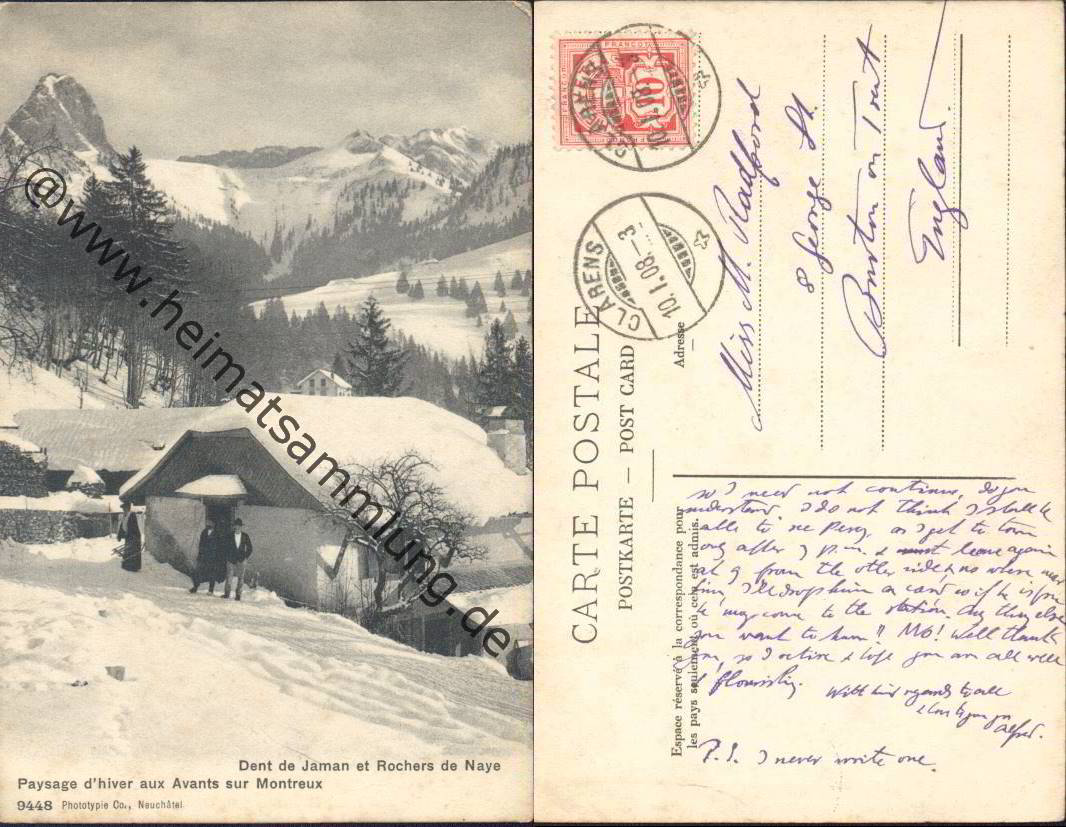 @www.heimatsammlung.de
Dent de Jaman et Rochers de Naye
Paysage d'hiver aux Avants sur Montreux
9448 Phototypie Co., Neuchâtel
FRANCO
FRANCO
10
CLARENS
10.I.08.
CLARENS
10.I.08.-3
CARTE POSTALE
POSTKARTE – POST CARD
Adresse
Miss M. Radford
8 George St.
Burton on Trent
England
Espace réservé à la correspondance pour
les pays seulement, où cela est admis.
so I need not continue, do you
understand. I do not think I shall be
able to see Percy, as I get to town
only after 7 p.m. & must leave again
at 9 from the other side, & no where near
him, I'll drop him a card so if he is free
he may come to the station. Any thing else
you want to know!! No! Well thank
you, so I retire & hope you are all well
& flourishing.
With kind regards to all
& love to you
Alfred.
P.S. I never write one.